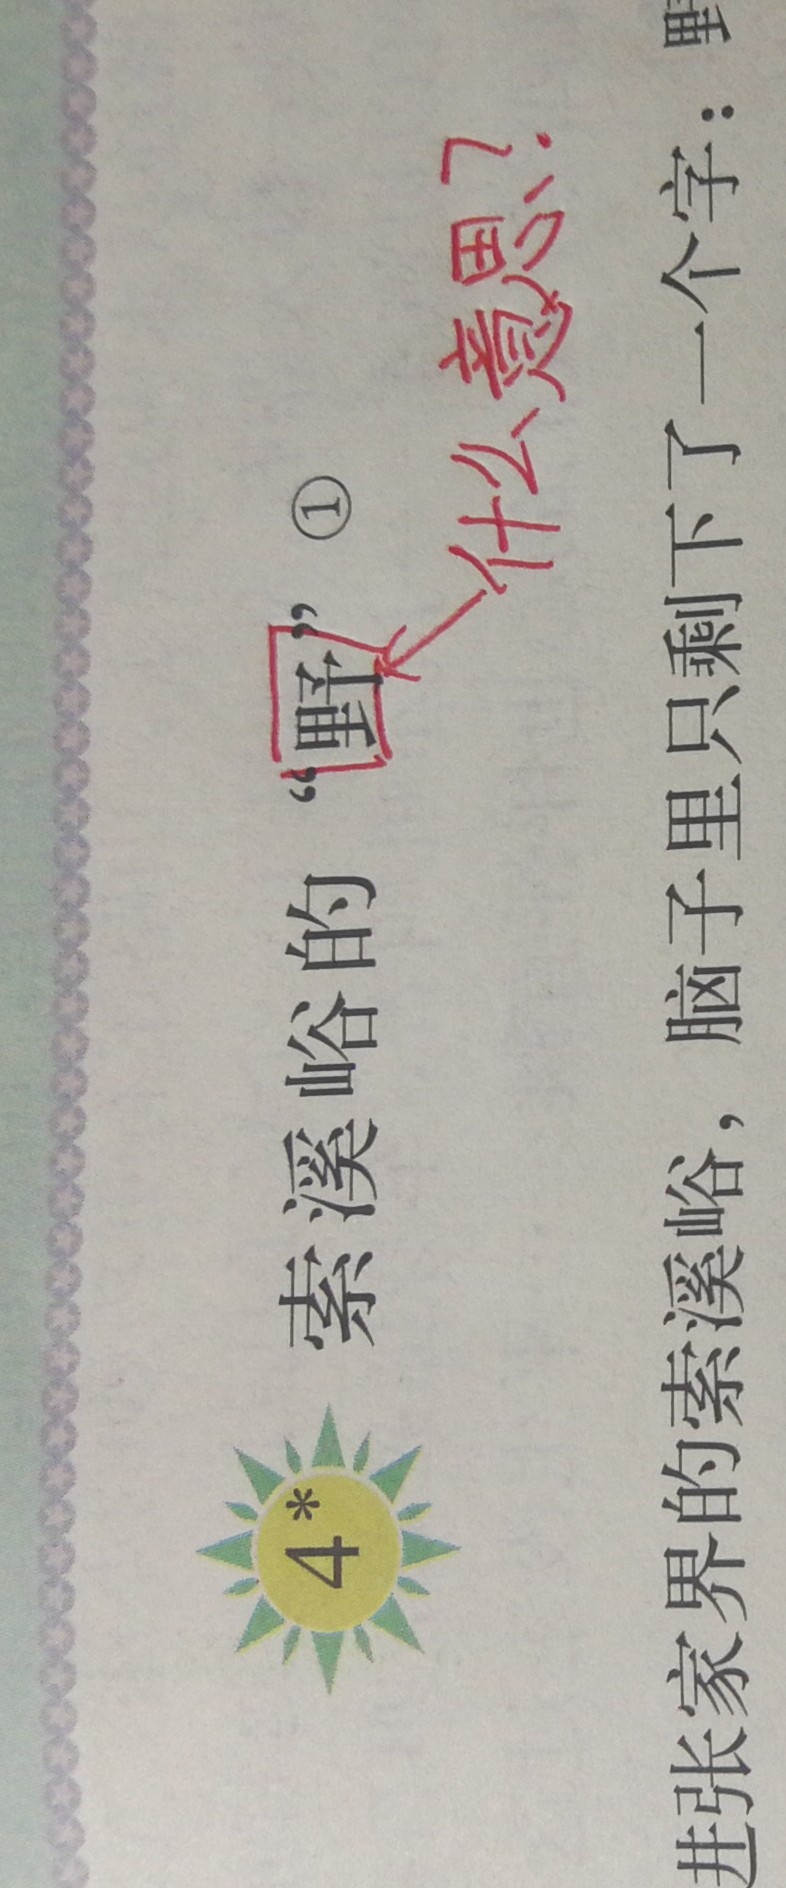 4* 索溪峪的“野”①
什么意思？
进张家界的索溪峪，脑子里只剩下了一个字：野